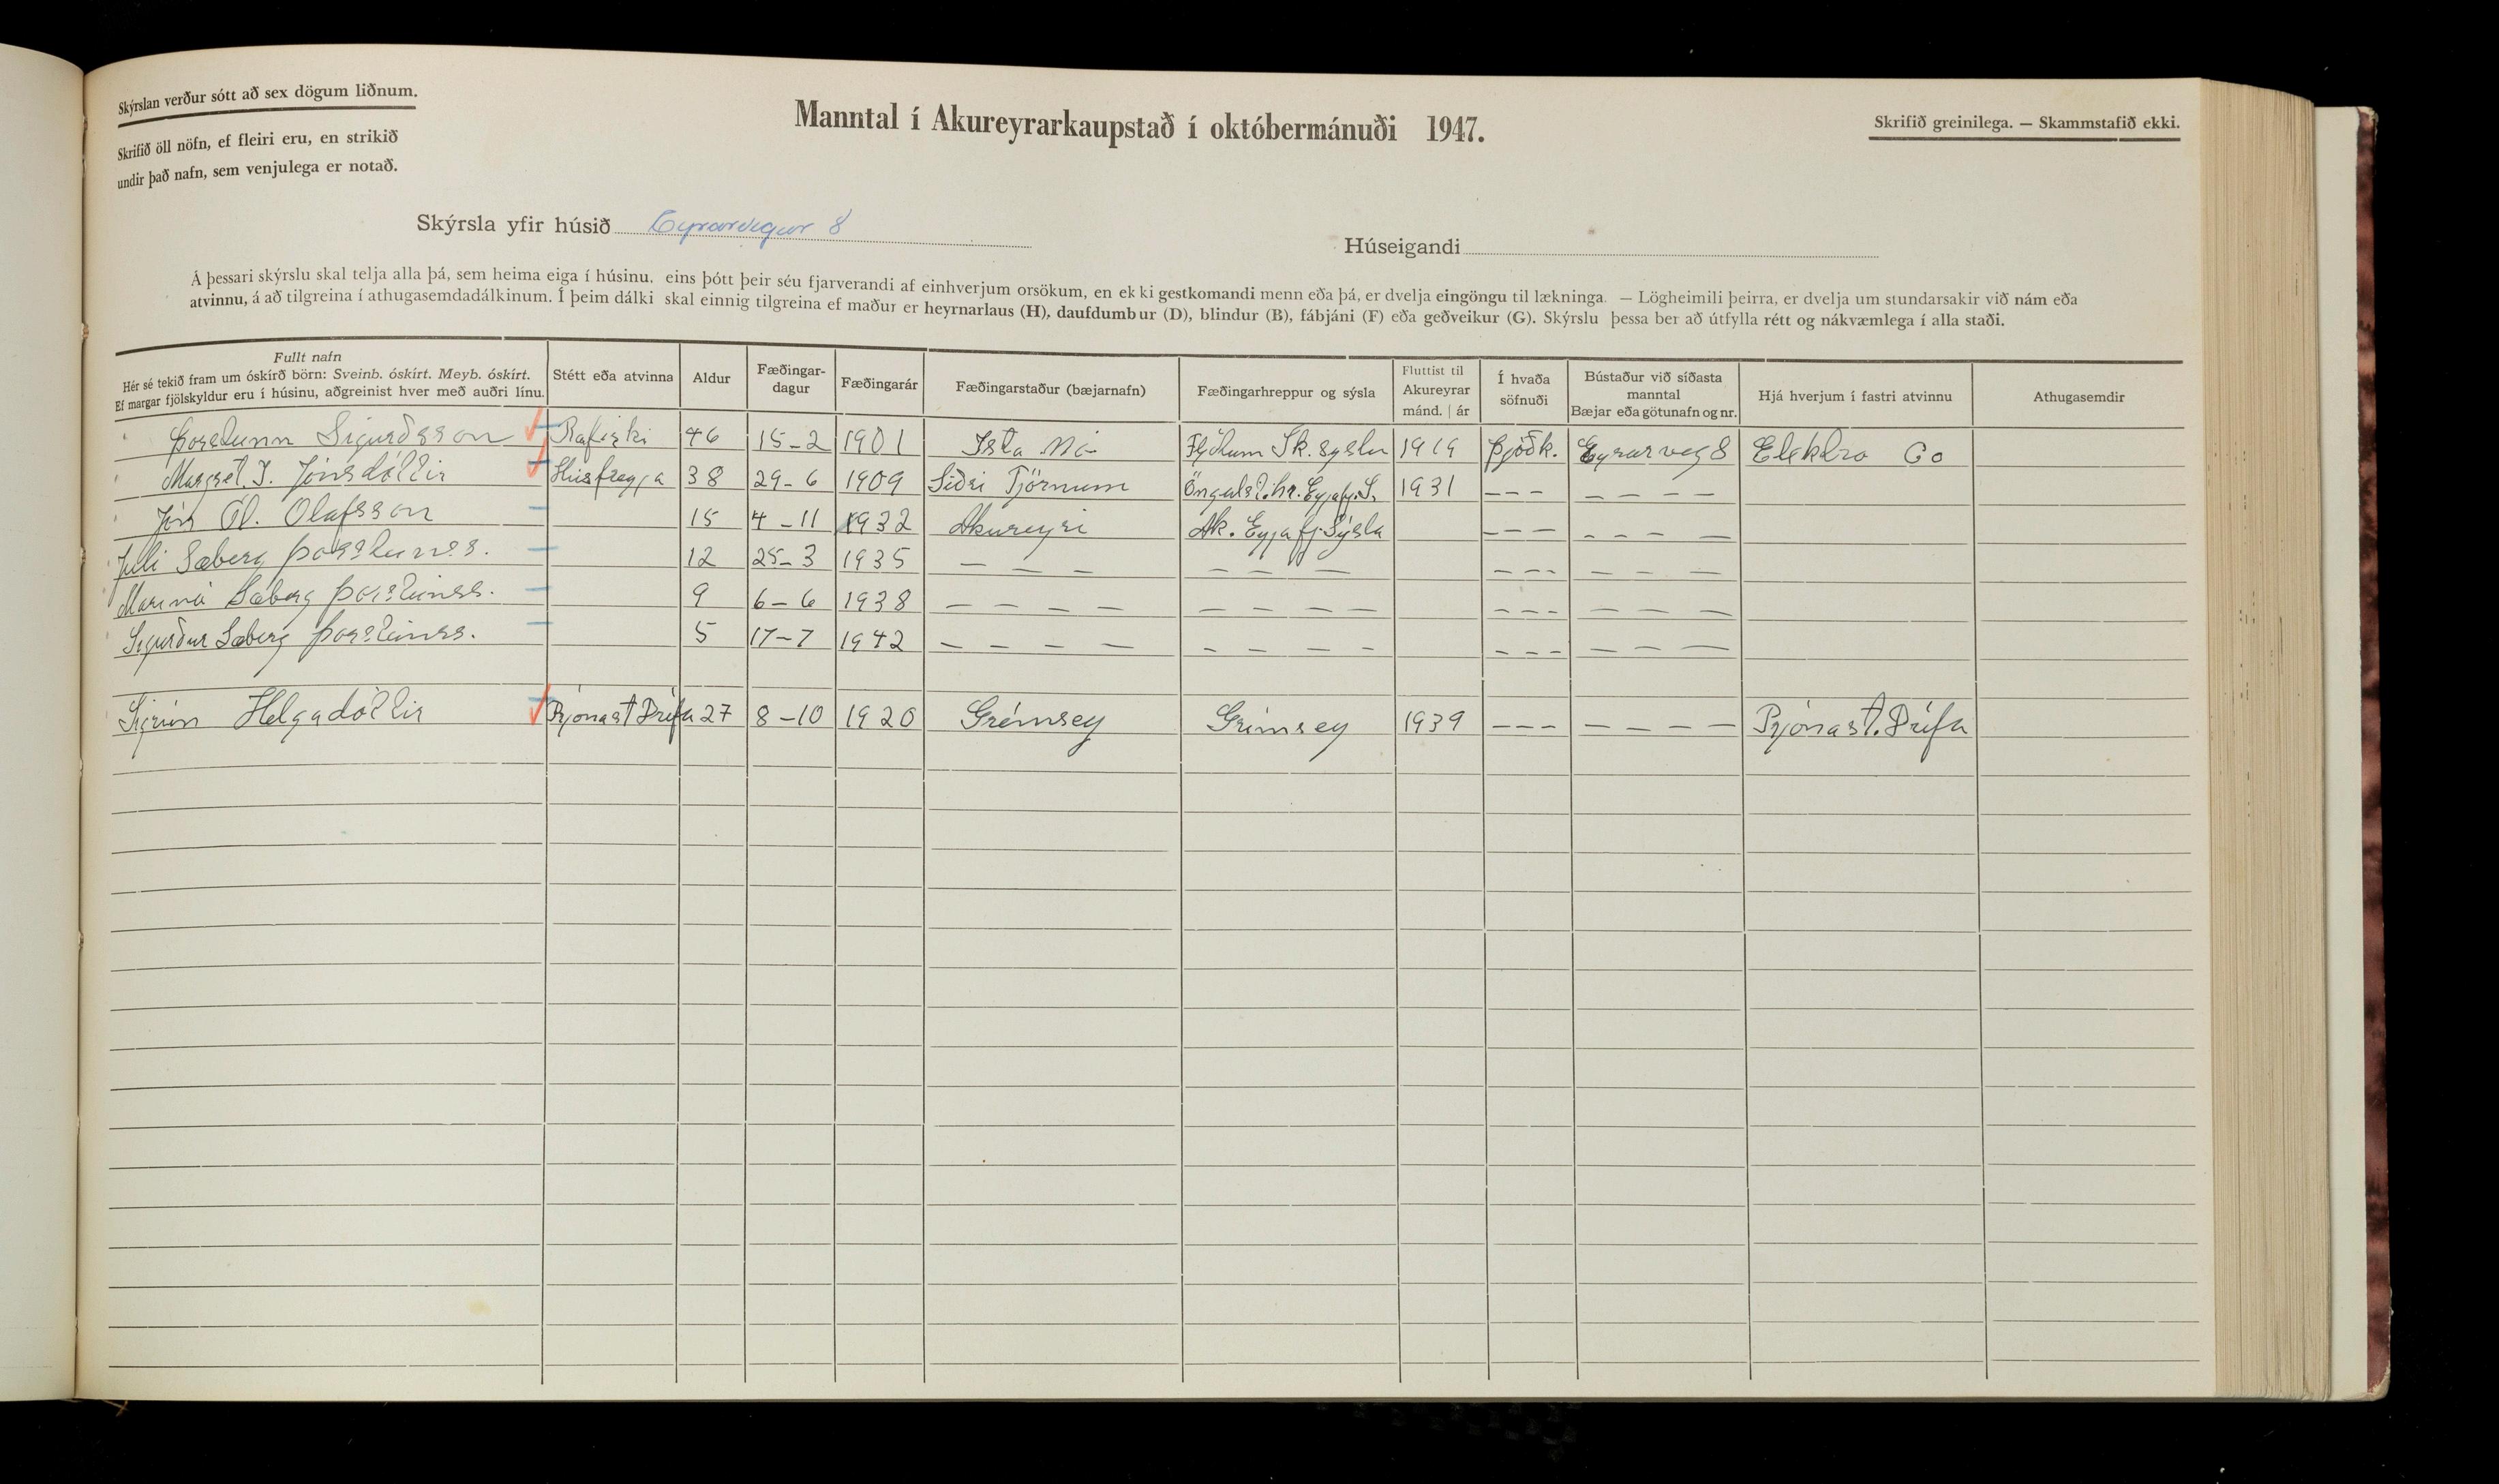 Skýrslan verður sótt að sex dögum liðnum.
Skrifið öll nöfn, ef fleiri eru, en strikið
undir það nafn, sem venjulega er notað.
Manntal í Akureyrarkaupstað í októbermánuði 1947.
Skrifið greinilega. — Skammstafið ekki.
Skýrsla yfir húsið Eyrarvegur 8
Húseigandi
Á þessari skýrslu skal telja alla þá, sem heima eiga í húsinu. eins þótt þeir séu fjarverandi af einhverjum orsökum, en ekki gestkomandi menn eða þá, er dvelja eingöngu til lækninga. — Lögheimili þeirra, er dvelja um stundarsakir við nám eða
atvinnu, á að tilgreina í athugasemdadálkinum. Í þeim dálki skal einnig tilgreina ef maður er heyrnarlaus (H), daufdumbur (D), blindur (B), fábjáni (F) eða geðveikur (G). Skýrslu þessa ber að útfylla rétt og nákvæmlega í alla staði.
Fullt nafn
Hér sé tekið fram um óskírð börn: Sveinb. óskírt. Meyb. óskírt.
Ef margar fjölskyldur eru í húsinu, aðgreinist hver með auðri línu.
Stétt eða atvinna
Aldur
Fæðingar-
dagur
Fæðingarár
Fæðingarstaður (bæjarnafn)
Fæðingarhreppur og sýsla
Fluttist til
Akureyrar
mánd. | ár
Í hvaða
söfnuði
Bústaður við síðasta
manntal
Bæjar eða götunafn og nr.
Hjá hverjum í fastri atvinnu
Athugasemdir
Þorsteinn Sigurðsson Rafvirki 46 15-2 1901 Ysta Mó Fljótum Sk. syslu 1919 Þjóðk. Eyrarveg 8 Elektro Co
Margrét. J. Jónsdóttir Húsfreyja 38 29-6 1909 Syðri Tjörnum Öngulst.hr. Eyjafj.S. 1931 --- ----
Jón Ól. Ólafsson 15 4-11 1932 Akureyri Ak. Eyjafj. Sýsla --- ----
Júlí Sæberg Þorsteinss. 12 25-3 1935 --- --- --- ---
Marinó Sæberg Þorsteinss. 9 6-6 1938 ---- ---- --- ---
Sigurður Sæberg Þorsteinss. 5 17-7 1942 ---- ---- --- ---
Sigrún Helgadóttir Prjónast Drífa 27 8-10 1920 Grímsey Grímsey 1939 --- ---- Prjónast. Drífa